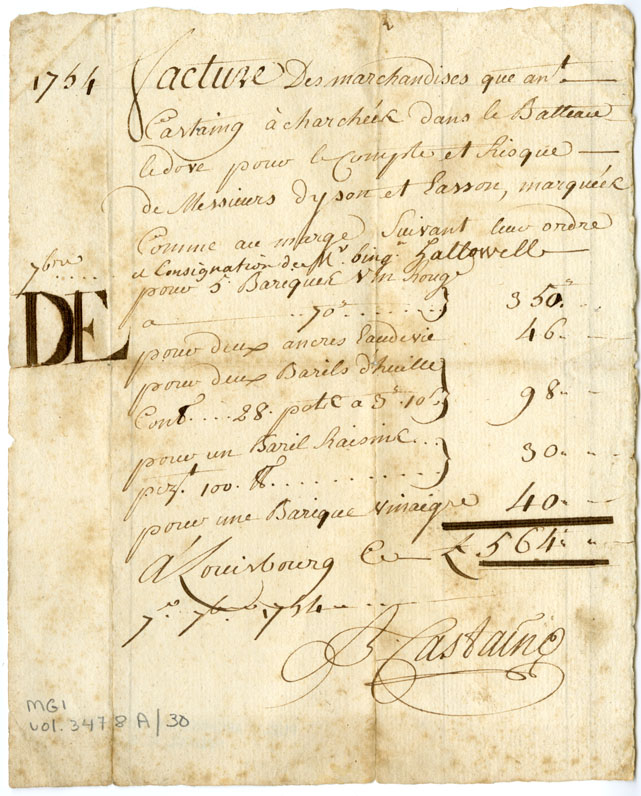 1754 facture Des marchandises que ant.
Castaing à charchéék dans le Batteau
ledove pour le Compte et Risque
de Messieurs dyson et Easson, marquéék
Comme au marge Suivant leur ordre
7bre
et Consignation de Mr. binj.n Hallowell
DE
pour 5 Bariques Vin Rouge
a 70" 350"
pour deux ancres Eaudevie 46
pour deux Barils d'huille
Cont. 28 pots a 3" 10s 98
pour un Baril Raisins
pezt. 100 30
pour une Barique Vinaigre 40
á Louisbourg Ce £ 564
7e 7bre 1754
Castaing
MG1
vol. 3478 A/30